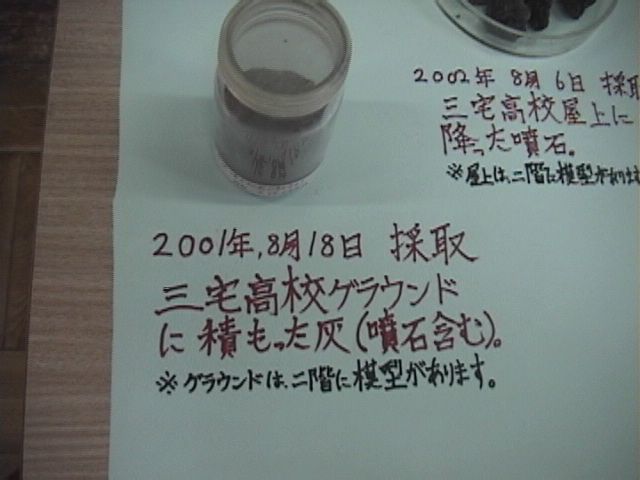 2002年 8月 6日 採取
三宅高校屋上に
降った噴石。
※屋上は、二階に模型があります
2001年,8月18日 採取
三宅高校グラウンド
に積もった灰(噴石含む)。
※グラウンドは、二階に模型があります。